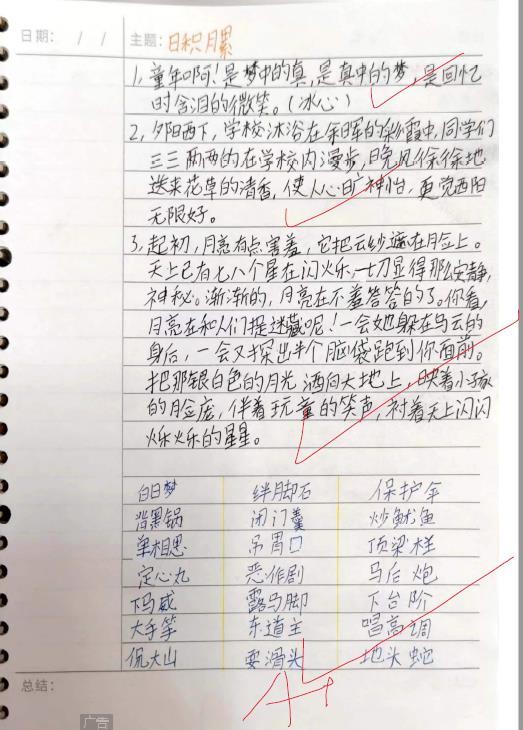 日期： / / 主题：日积月累
1，童年啊！是梦中的真，是真中的梦，是回忆
时含泪的微笑。（冰心）
2，夕阳西下，学校沐浴在余晖的彩霞中，同学们
三三两两的在学校内漫步，晚风徐徐地
送来花草的清香，使人心旷神怡，更觉西阳
无限好。
3，起初，月亮有点害羞，它把云纱遮在月脸上。
天上已有七八个星在闪烁，一切显得那么安静，
神秘。渐渐的，月亮在不羞答答的了。你看，
月亮在和人们捉迷藏呢！一会她躲在乌云的
身后，一会又探出半个脑袋跑到你面前。
把那银白色的月光洒向大地上，映着小孩
的脸庞，伴着玩童的笑声，衬着天上闪闪
烁烁的星星。
白日梦 绊脚石 保护伞
背黑锅 闭门羹 炒鱿鱼
单相思 吊胃口 顶梁柱
定心丸 恶作剧 马后炮
下马威 露马脚 下台阶
大手笔 东道主 唱高调
侃大山 耍滑头 地头蛇
总结： A+
广告